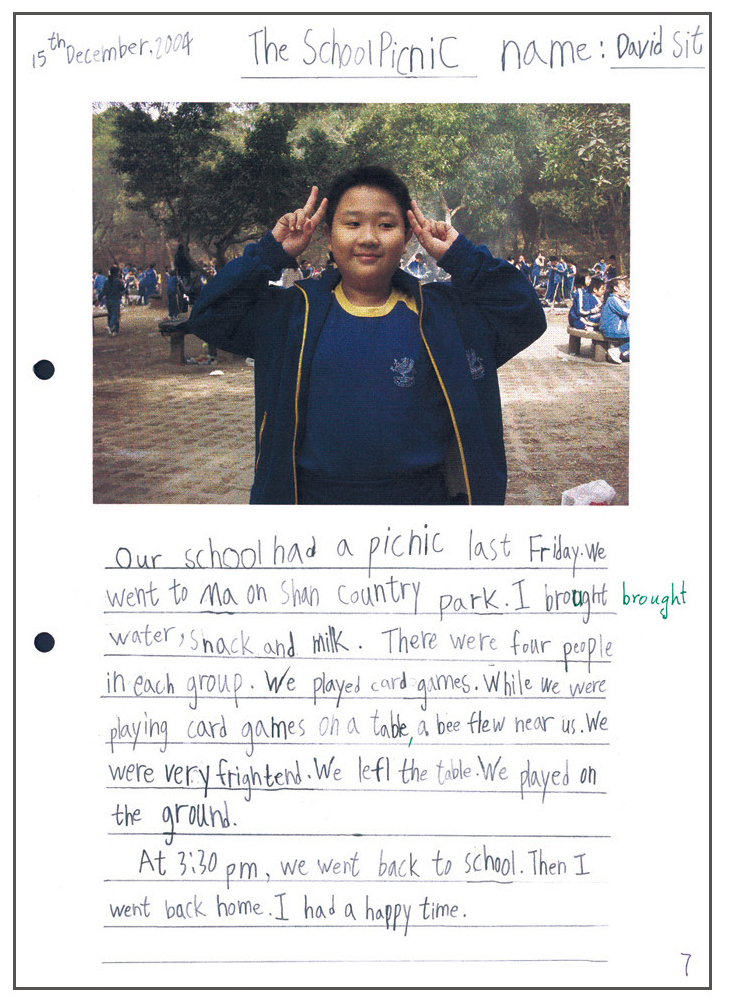 15th December, 2004 The School Picnic name: David Sit
Our school had a picnic last Friday. We
went to Ma on Shan Country park. I brought brought
water, snack and milk. There were four people
in each group. We played card games. While we were
playing card games on a table, a bee flew near us. We
were very frightend. We left the table. We played on
the ground.
At 3:30 pm, we went back to school. Then I
went back home. I had a happy time.
7